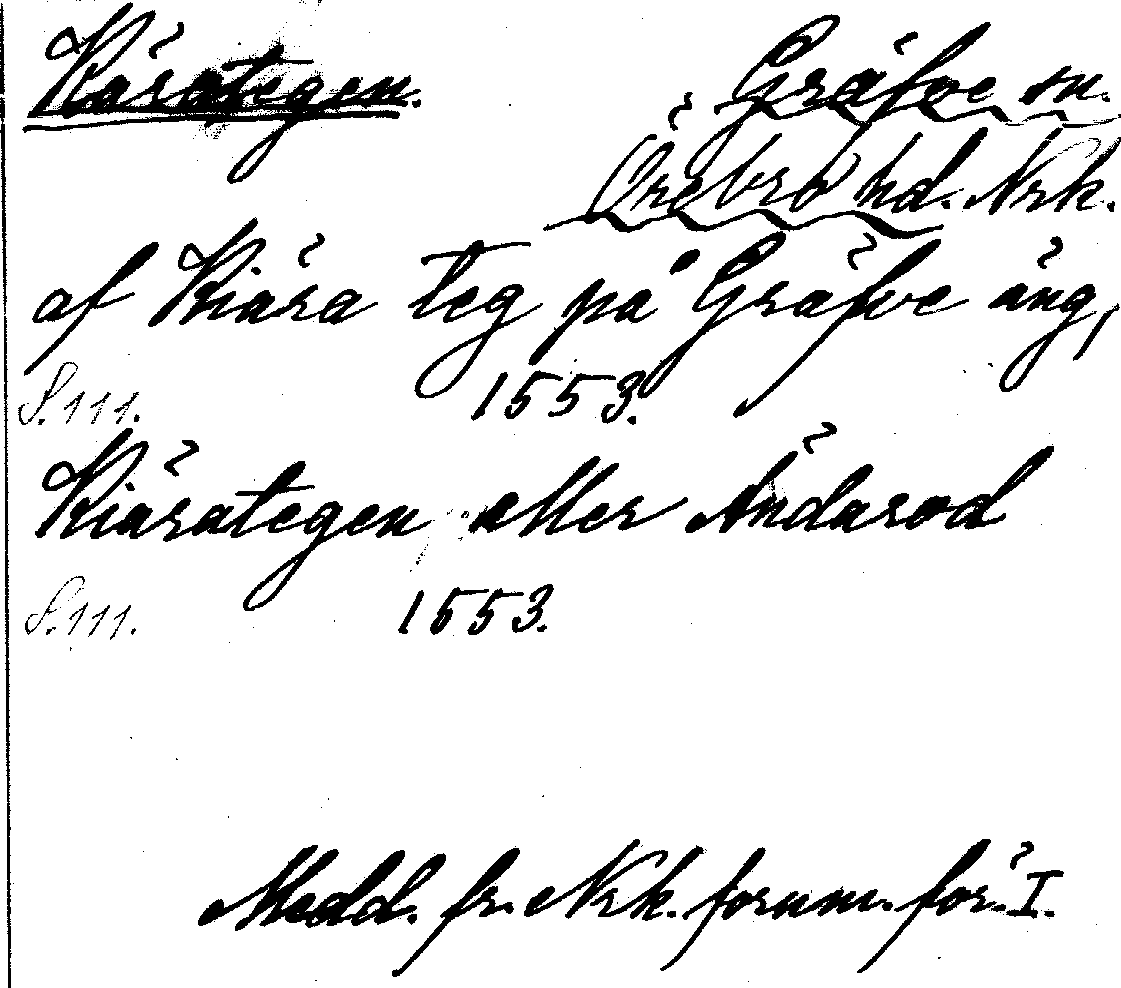 Kärategen. Gräfve sn.
Örebro hd. Nrk.
af Kiära teg på Gräfve äng,
S. 111. 1553.
Kiärategen eller Ändarod
S. 111. 1553.
Medd. fr. Nrk. fornm. för. I.